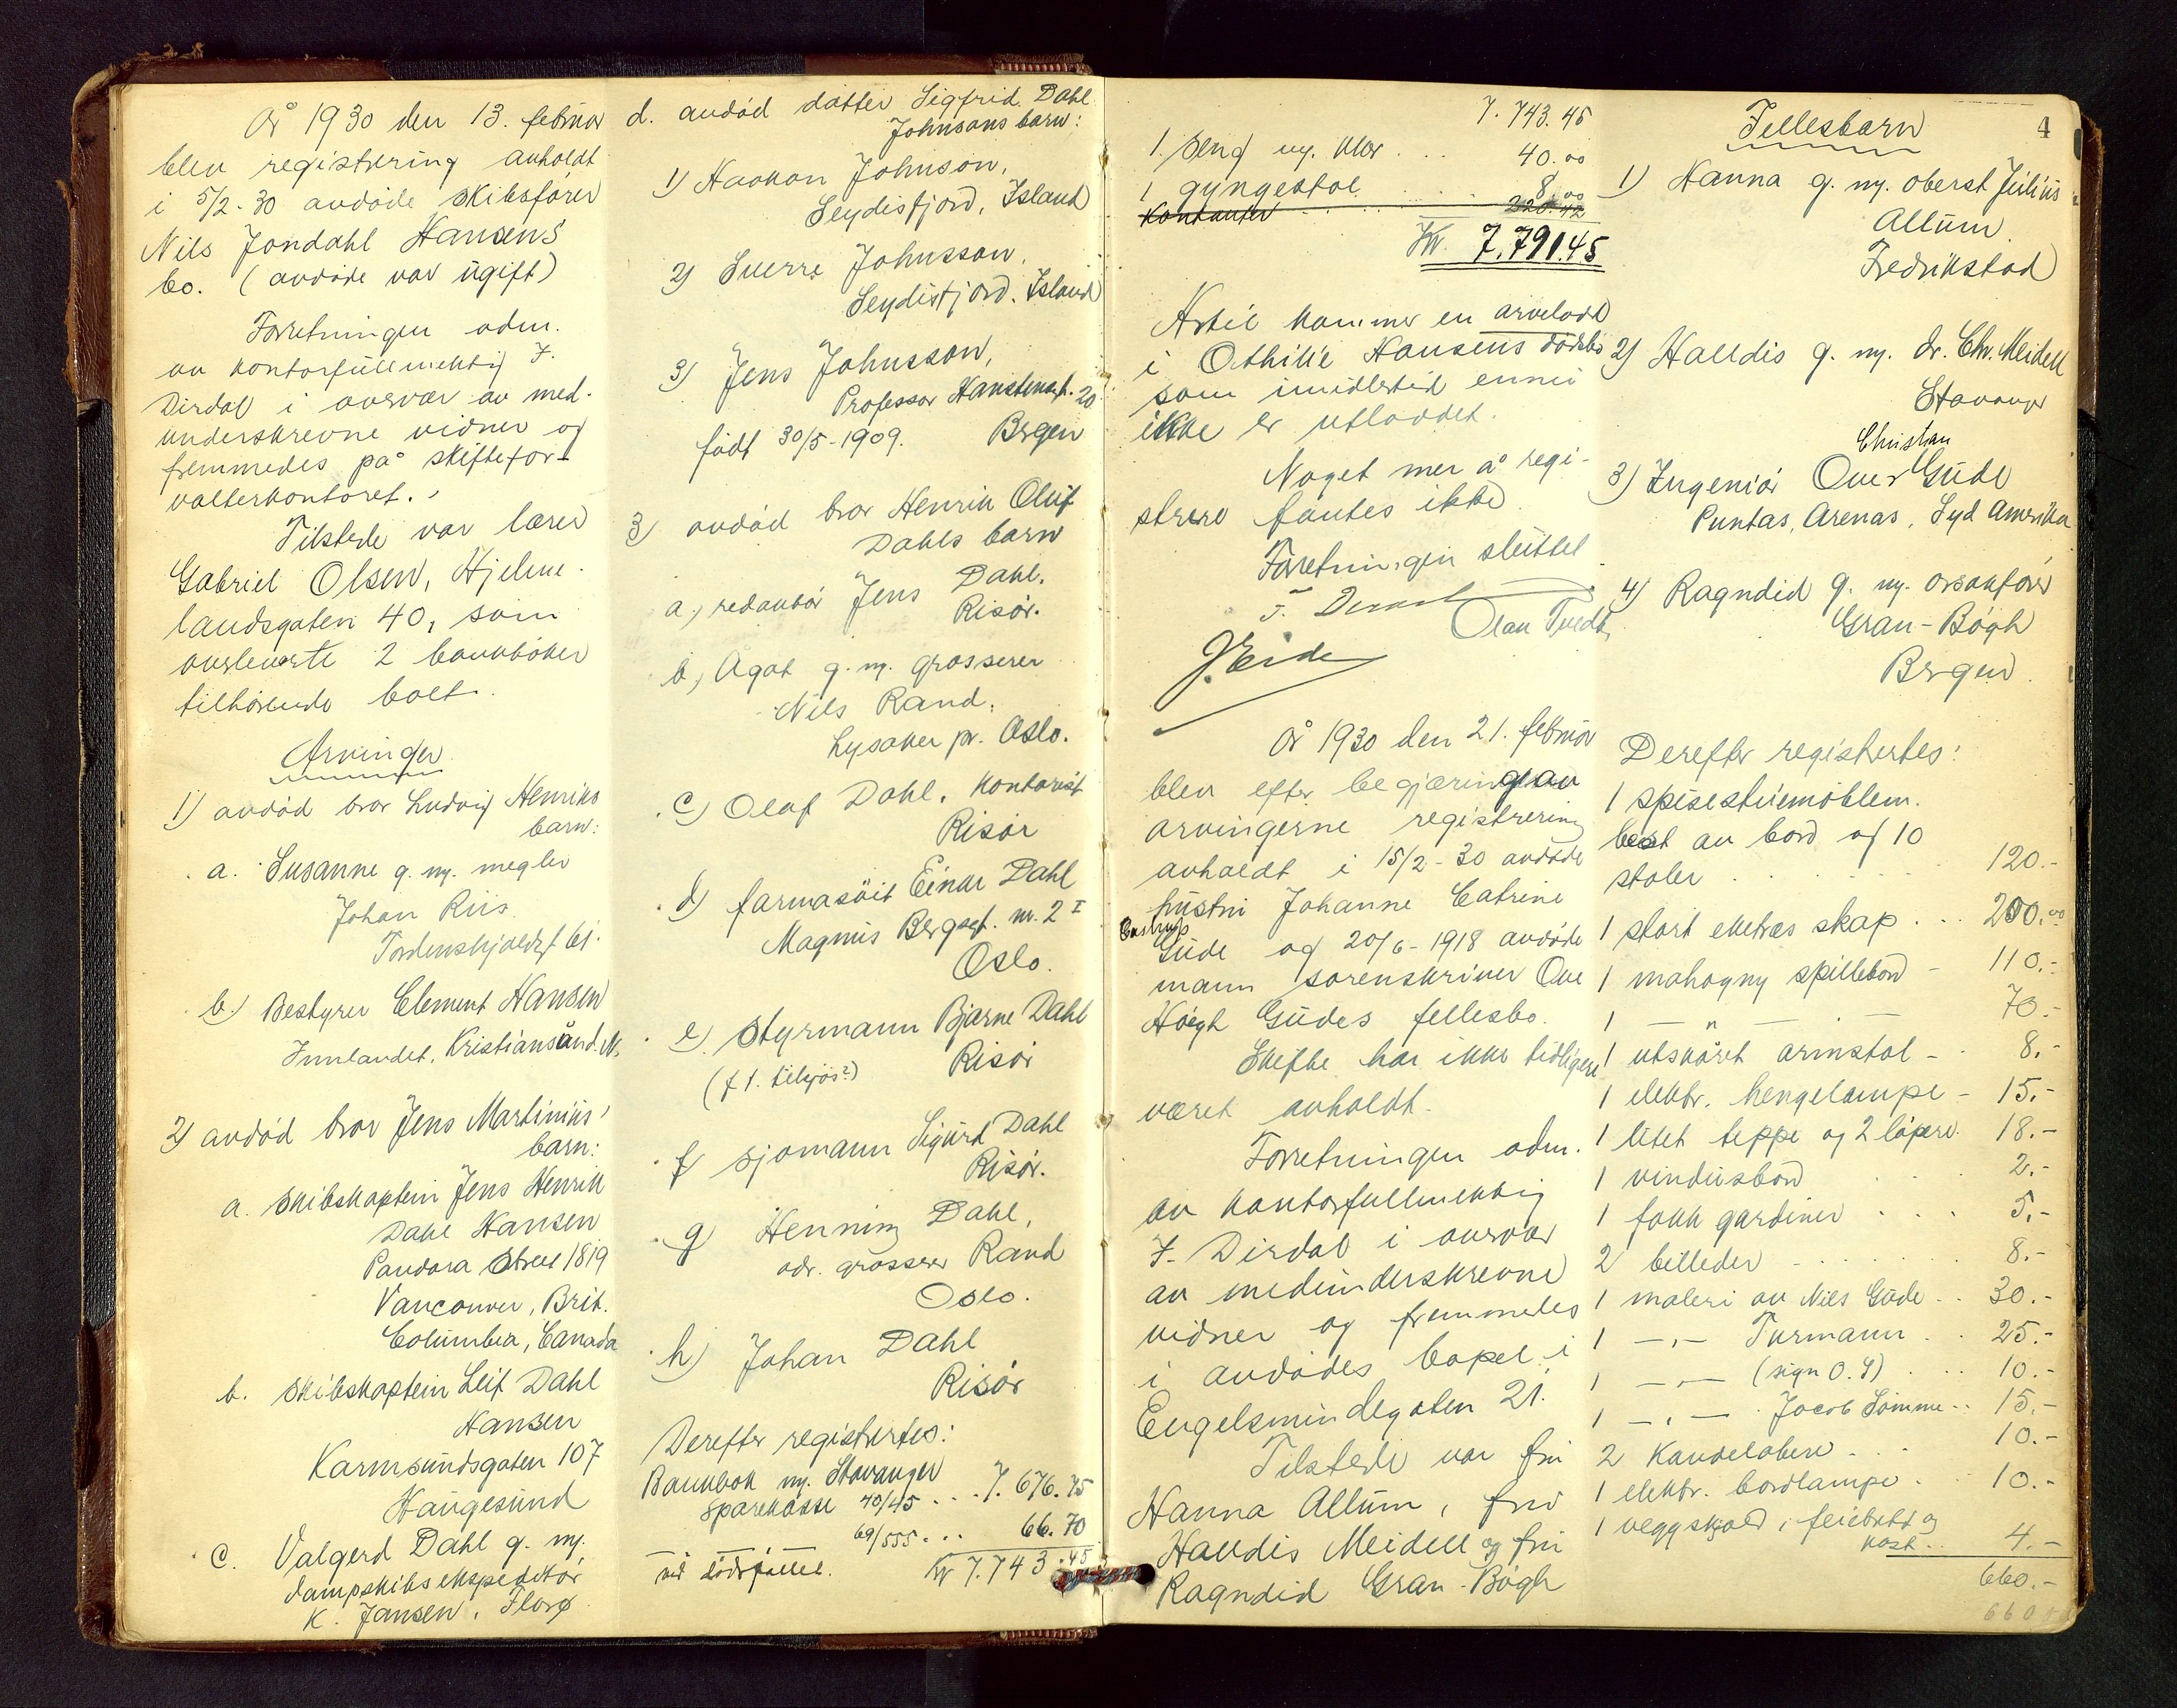 År 1930 den 13. februar
blev registrering avholdt
i 5/2-30 avdøde skibsfører
Nils Jondahl Hansens
bo. (avdøde var ugift)
Forretningen adm.
av kontorfullmektig F.
Dirdal i overvær av med-
underskrevne vidner og
fremmedes på skiftefor-
valterkontoret.
Tilstede var lærer
Gabriel Olsen, Hjelme-
landsgaten 40, som
overleverte 2 bankbøker
tilhørende boet.
Arvinger
1) avdød bror Ludvig Henriks
barn:
a. Susanne g. m. megler
Johan Riis
Tordenskjoldsgt 61.
b.) Bestyrer Clement Hansen
Innlandet, Kristiansund. N.
2) avdød bror Jens Martinius'
barn:
a. skibskaptein Jens Henrik
Dahl Hansen
Pandora Street 1819
Vancouver, Brit.
Columbia, Canada
b. skibskaptein Leif Dahl
Hansen
Karmsundsgaten 107
Haugesund
c. Valgerd Dahl g. m.
dampskibsekspeditør
K. Jansen, Florø
d. avdød datter Sigfrid Dahl
Johnsons barn:
1) Haakon Johnson,
Seydisfjord, Island
2) Sverre Johnsson,
Seydisfjord. Island
3) Jens Johnsson,
Professor Hansteensgt. 20
født 30/5-1909. Bergen
3) avdød bror Henrik Oluf
Dahls barn
a, redaktør Jens Dahl.
Risør.
b, Ågot g. m. grosserer
Nils Rand,
Lysaker pr. Oslo.
c) Olaf Dahl, kontorist
Risør
d) farmasøit Einar Dahl
Magnus Bergsgt. nr. 2 I
Oslo.
e) styrmann Bjarne Dahl
(f. t. tilsjøs?) Risør
f) sjømann Sigurd Dahl
Risør.
g) Henning Dahl,
adr. grosserer Rand
Oslo.
h) Johan Dahl
Risør
Derefter registrertes:
Bankbok m. Stavanger
sparekasse 40/45 . . . 7.676.75
69/555 . . . 66.70
ved dødsfallet. kr 7.743.45
7.743.45
1 seng m. klær . . . 40.00
1 gyngestol . . . 8.00
Kontanter . . . 220.42
Kr. 7.791.45
Hertil kommer en arvelodd
i Othilie Hansens dødsbo
som imidlertid ennu
ikke er utloddet.
Noget mer å regi-
strere fantes ikke
Forretningen sluttet
F. Dirdal
Olav Tvedt
J. Eide
År 1930 den 21. februar
blev efter begjæring av
arvingerne registrering
avholdt i 15/2-30 avdøde
fru Johanne Catrine
Gude og 20/6-1918 avdøde
mann sorenskriver Ove
Høegh Gudes fellesbo.
Skifte har ikke tidligere
været avholdt.
Forretningen adm.
av kontorfullmektig
F. Dirdal i overvær
av medunderskrevne
vidner og fremmedes
i avdødes bopel i
Engelsmindegaten 21.
Tilstede var fru
Hanna Allum, fru
Halldis Meidell og fru
Ragndid Gran-Bøgh
4
Fellesbarn
1) Hanna g. m. oberst Julius
Allum
Fredrikstad
2) Halldis g. m. dr. Chr. Meidell
Stavanger
Christian
3) Ingeniør Ove Gude
Puntas, Arenas, Syd Amerika
4) Ragndid g. m. orsakfører
Gran-Bøgh
Bergen
Derefter registrertes:
1 spisestuemøblem.
best av bord og 10
stoler . . . 120.-
1 stort eketræs skap . . . 200.00
1 mahogny spillebord - 110.-
1 — " — . — 70.-
1 utskåret armstol - 8.-
1 elektr. hengelampe - 15.-
1 litet teppe og 2 løpere. 18.-
1 vindusbord . . 2.-
1 fakk gardiner . . . 5.-
2 billeder . . . 8.-
1 maleri av Nils Gude . . 30.-
1 —,,— Turmann . . 25.-
1 —,,— (sign O. G) . . . 10.-
1 —,,— Jacob Sømme . . 15.-
2 Kandelabere . . . 10.-
1 elektr. bordlampe . . 10.-
1 veggskjold, feiebrett og
kost . . 4.-
660.-
660